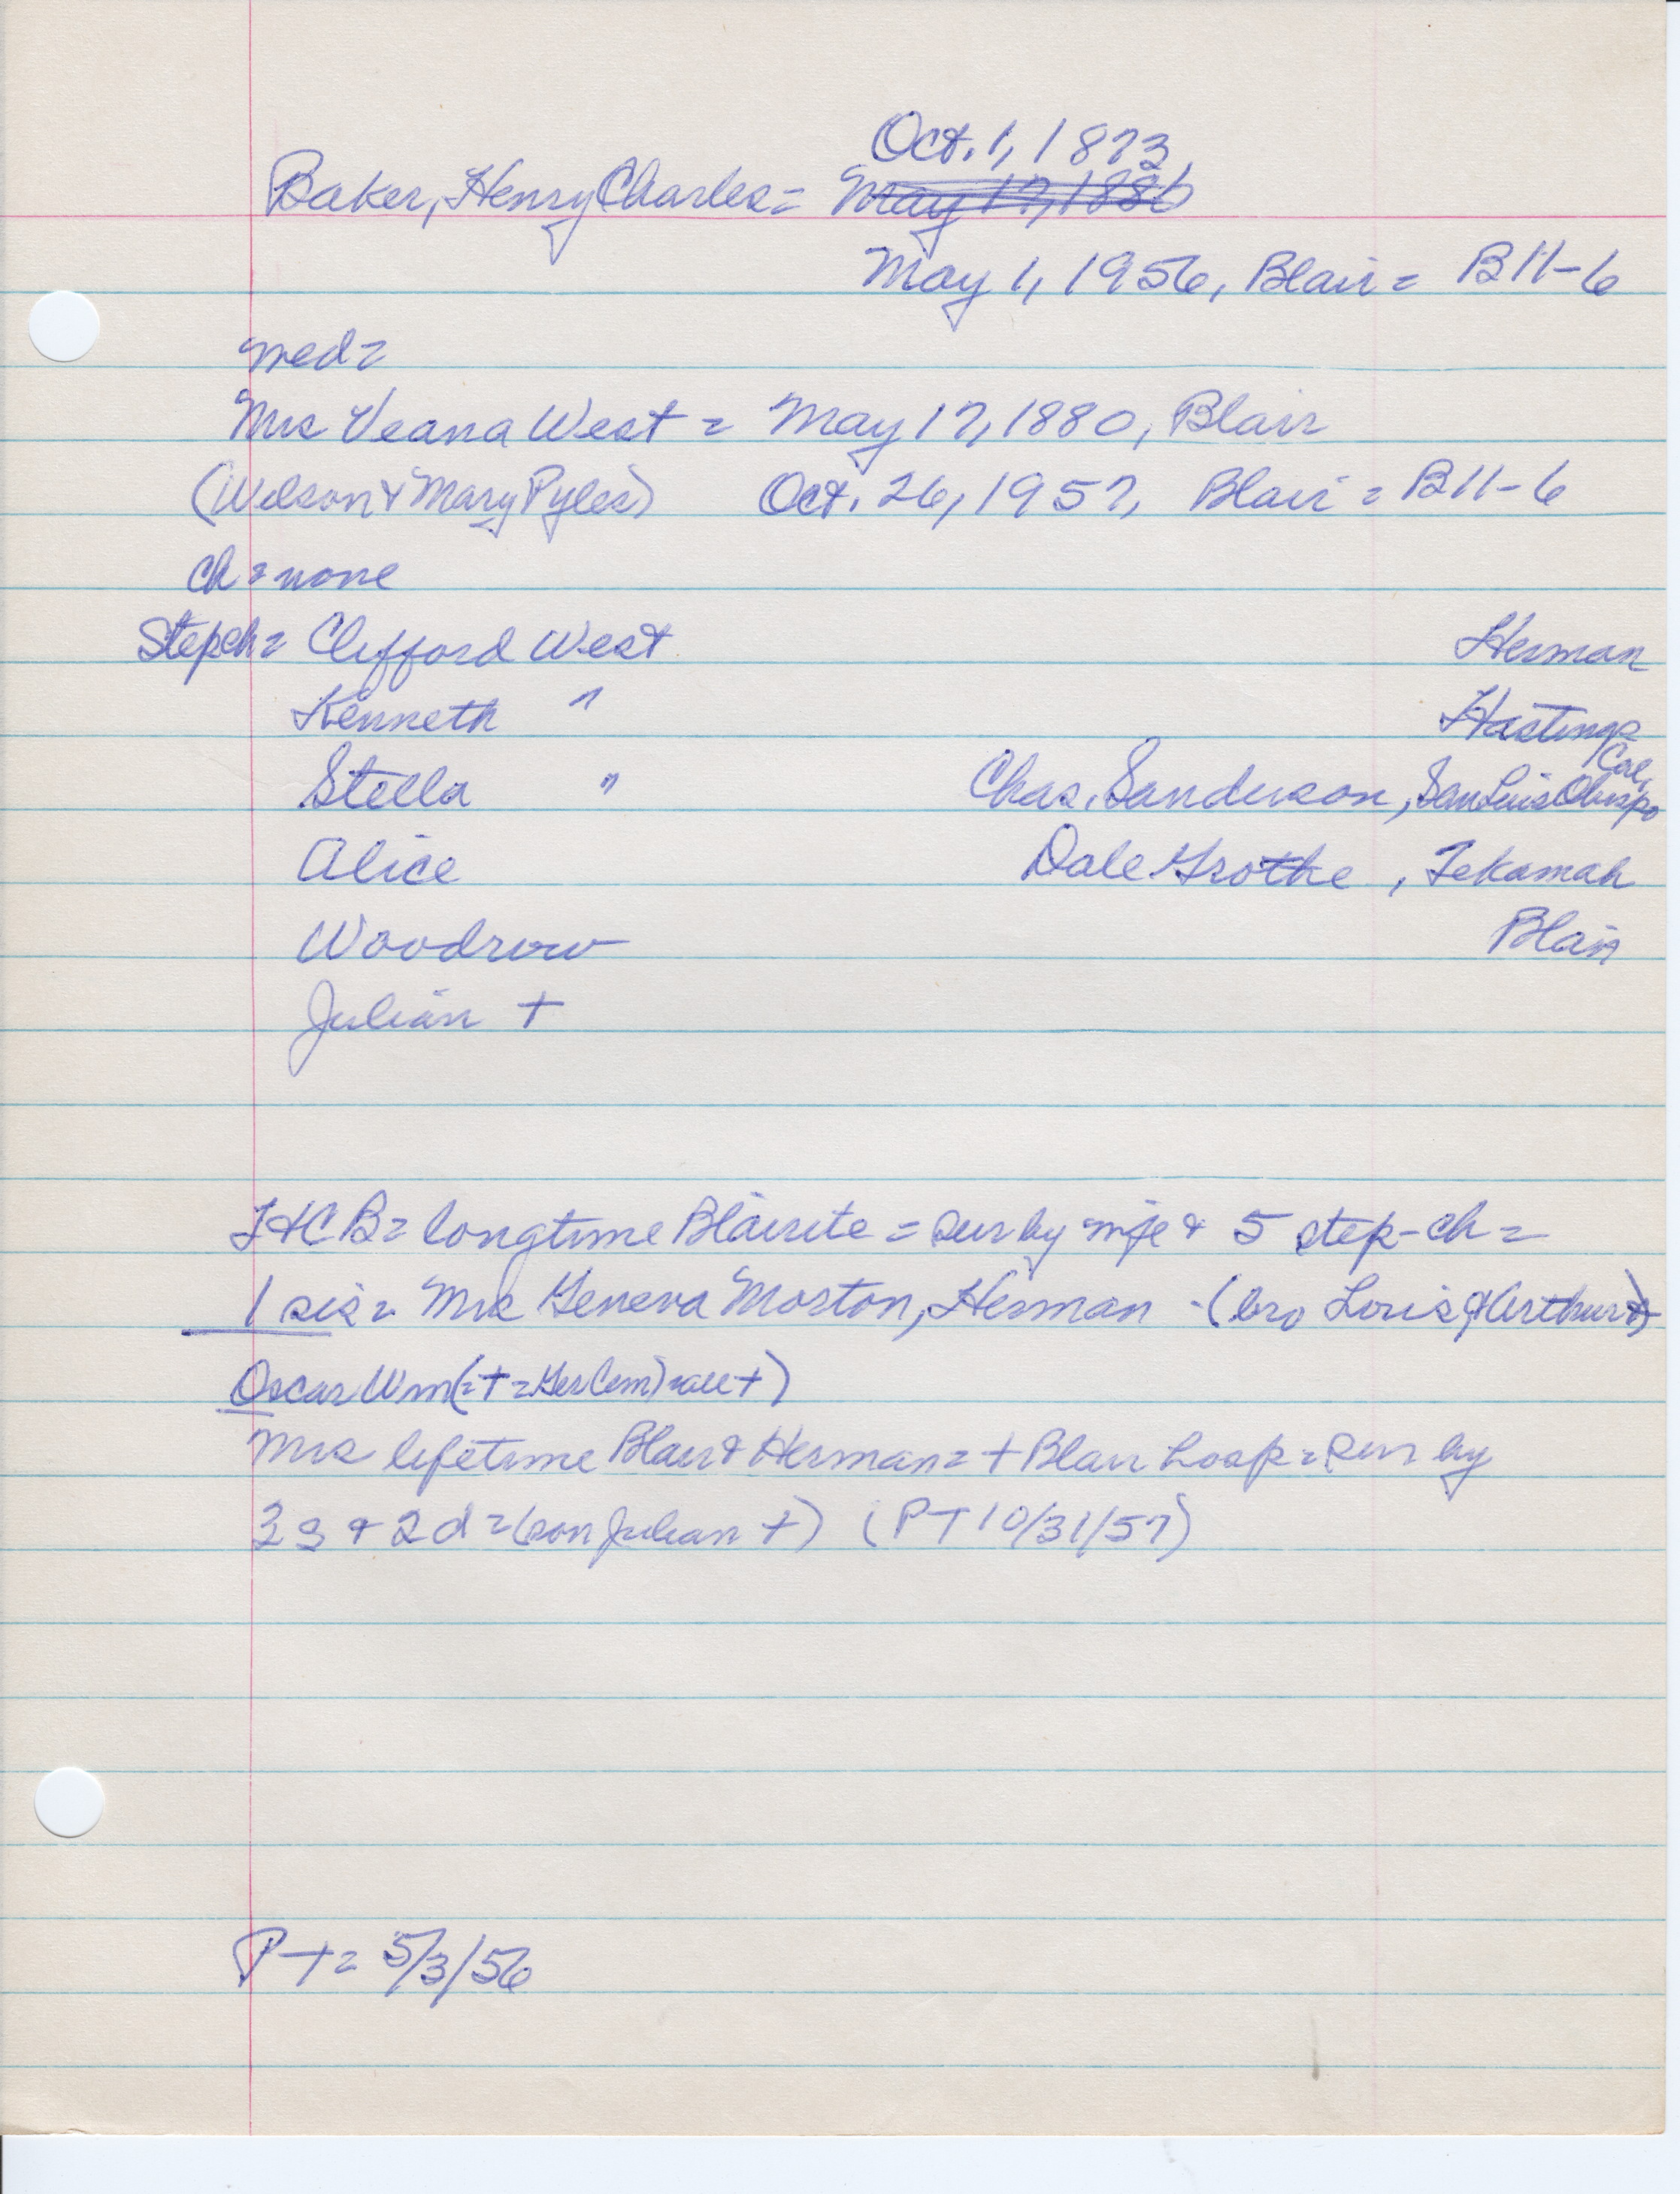 Oct. 1, 1873,
Baker, Henry Charles = May 17, 1886
May 1, 1956, Blair = B11-6
med =
Mrs Veana West = May 17, 1880, Blair
(Wilson & Mary Pyles) Oct. 26, 1957, Blair = B11-6
ch = none
Stepch = Clifford West Herman
Kenneth " Hastings
Stella " Chas. Sanderson, San Luis Obispo Cal,
Alice Dale Grothe, Tekamah
Woodrow Blair
Julian +
HCB = longtime Blairite = sur by wife & 5 step-ch =
1 sis = Mrs Geneva Morton, Herman - (bro Louis & Arthur +)
Oscar Wm (= + = Ger Cem) = all +)
Mrs lifetime Blair & Herman = + Blair hosp = sur by
3 s & 2 d = (son Julian +) (PT 10/31/57)
PT = 5/3/56